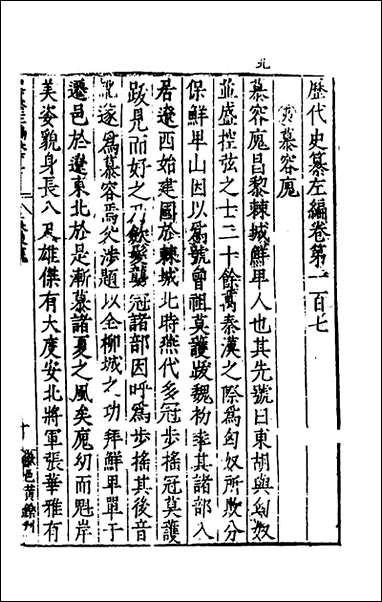 歷代史纂左編卷第一百七
慕容廆
慕容廆昌黎棘城鮮卑人也其先號曰東胡與匈奴
並盛控弦之士二十餘萬秦漢之際爲匈奴所敗分
保鮮卑山因以爲號曾祖莫護跋魏初率其諸部入
居遼西始建國於棘城北時燕代多冠步搖冠莫護
跋見而好之乃歛髮襲冠諸部因呼爲步搖其後音
訛遂爲慕容焉父涉歸以全柳城之功拜鮮卑單于
遷邑於遼東北於是漸慕諸夏之風矣廆幼而魁岸
美姿貌身長八尺雄傑有大度安北將軍張華雅有